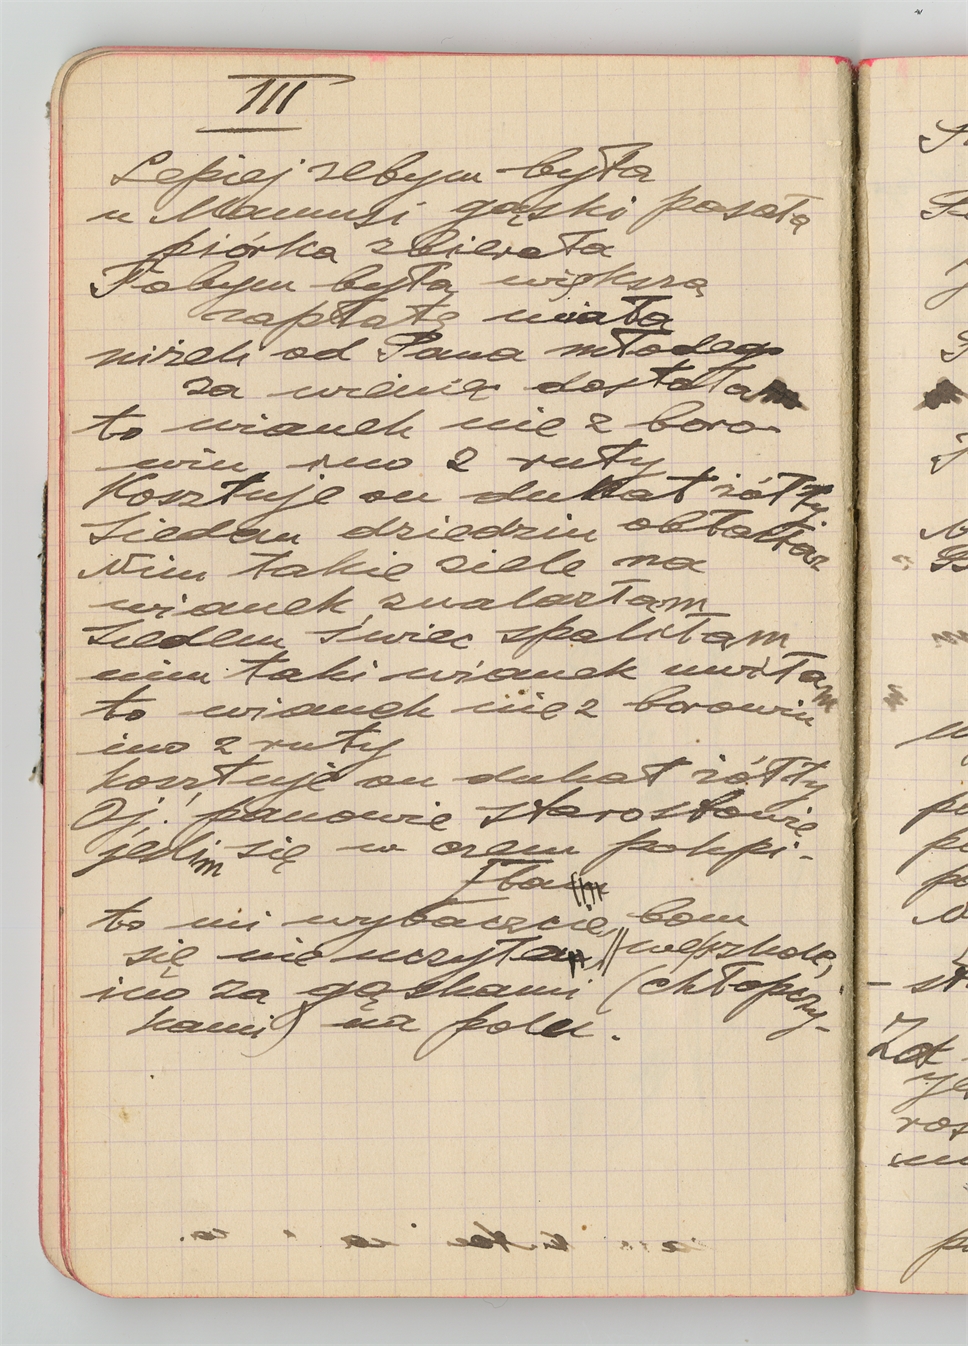 III
Lepiej żebym była
u Mamusi gąski pasała
piórka zbierała
Tobym była większą
zapłatę miała
niżeli od Pana młodego
za wieniec dostała
to wianek nie z boro-
win, ino z ruty
Kosztuje on dukat żółty
Siedem dziedzin
Nim takie ziele na
wianek znalazłam
Siedem świec spaliłam
nim taki wianek uwiłam
to wianek nie z borowin
ino z ruty
kosztuje on dukat żółty
Oj! panowie starostowie
jeślim się w czem pokpi-
łam
to mi wybaczcie, bom
się nie uczyła w szkole,
ino za gąskami (chłopczy-
kami) na polu.